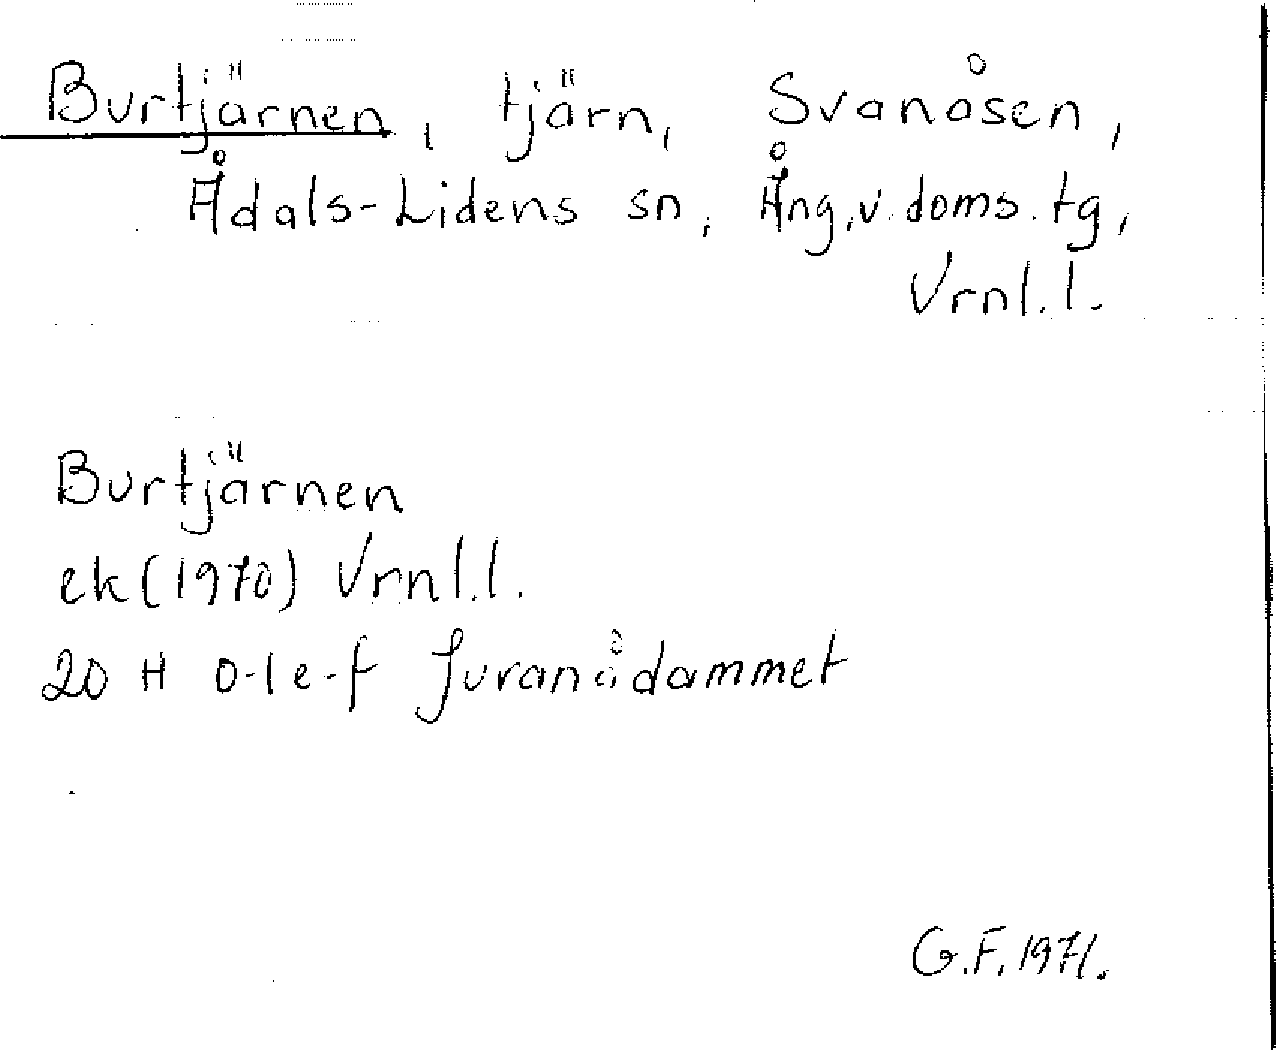 Burtjärnen, tjärn, Svanåsen,
Ådals-Lidens sn, Ång.v. doms. tg,
Vrnl.l.
Burtjärnen
ek (1970) Vrnl.l.
20 H 0-1 e-f Juranådammet
G.F. 1971.